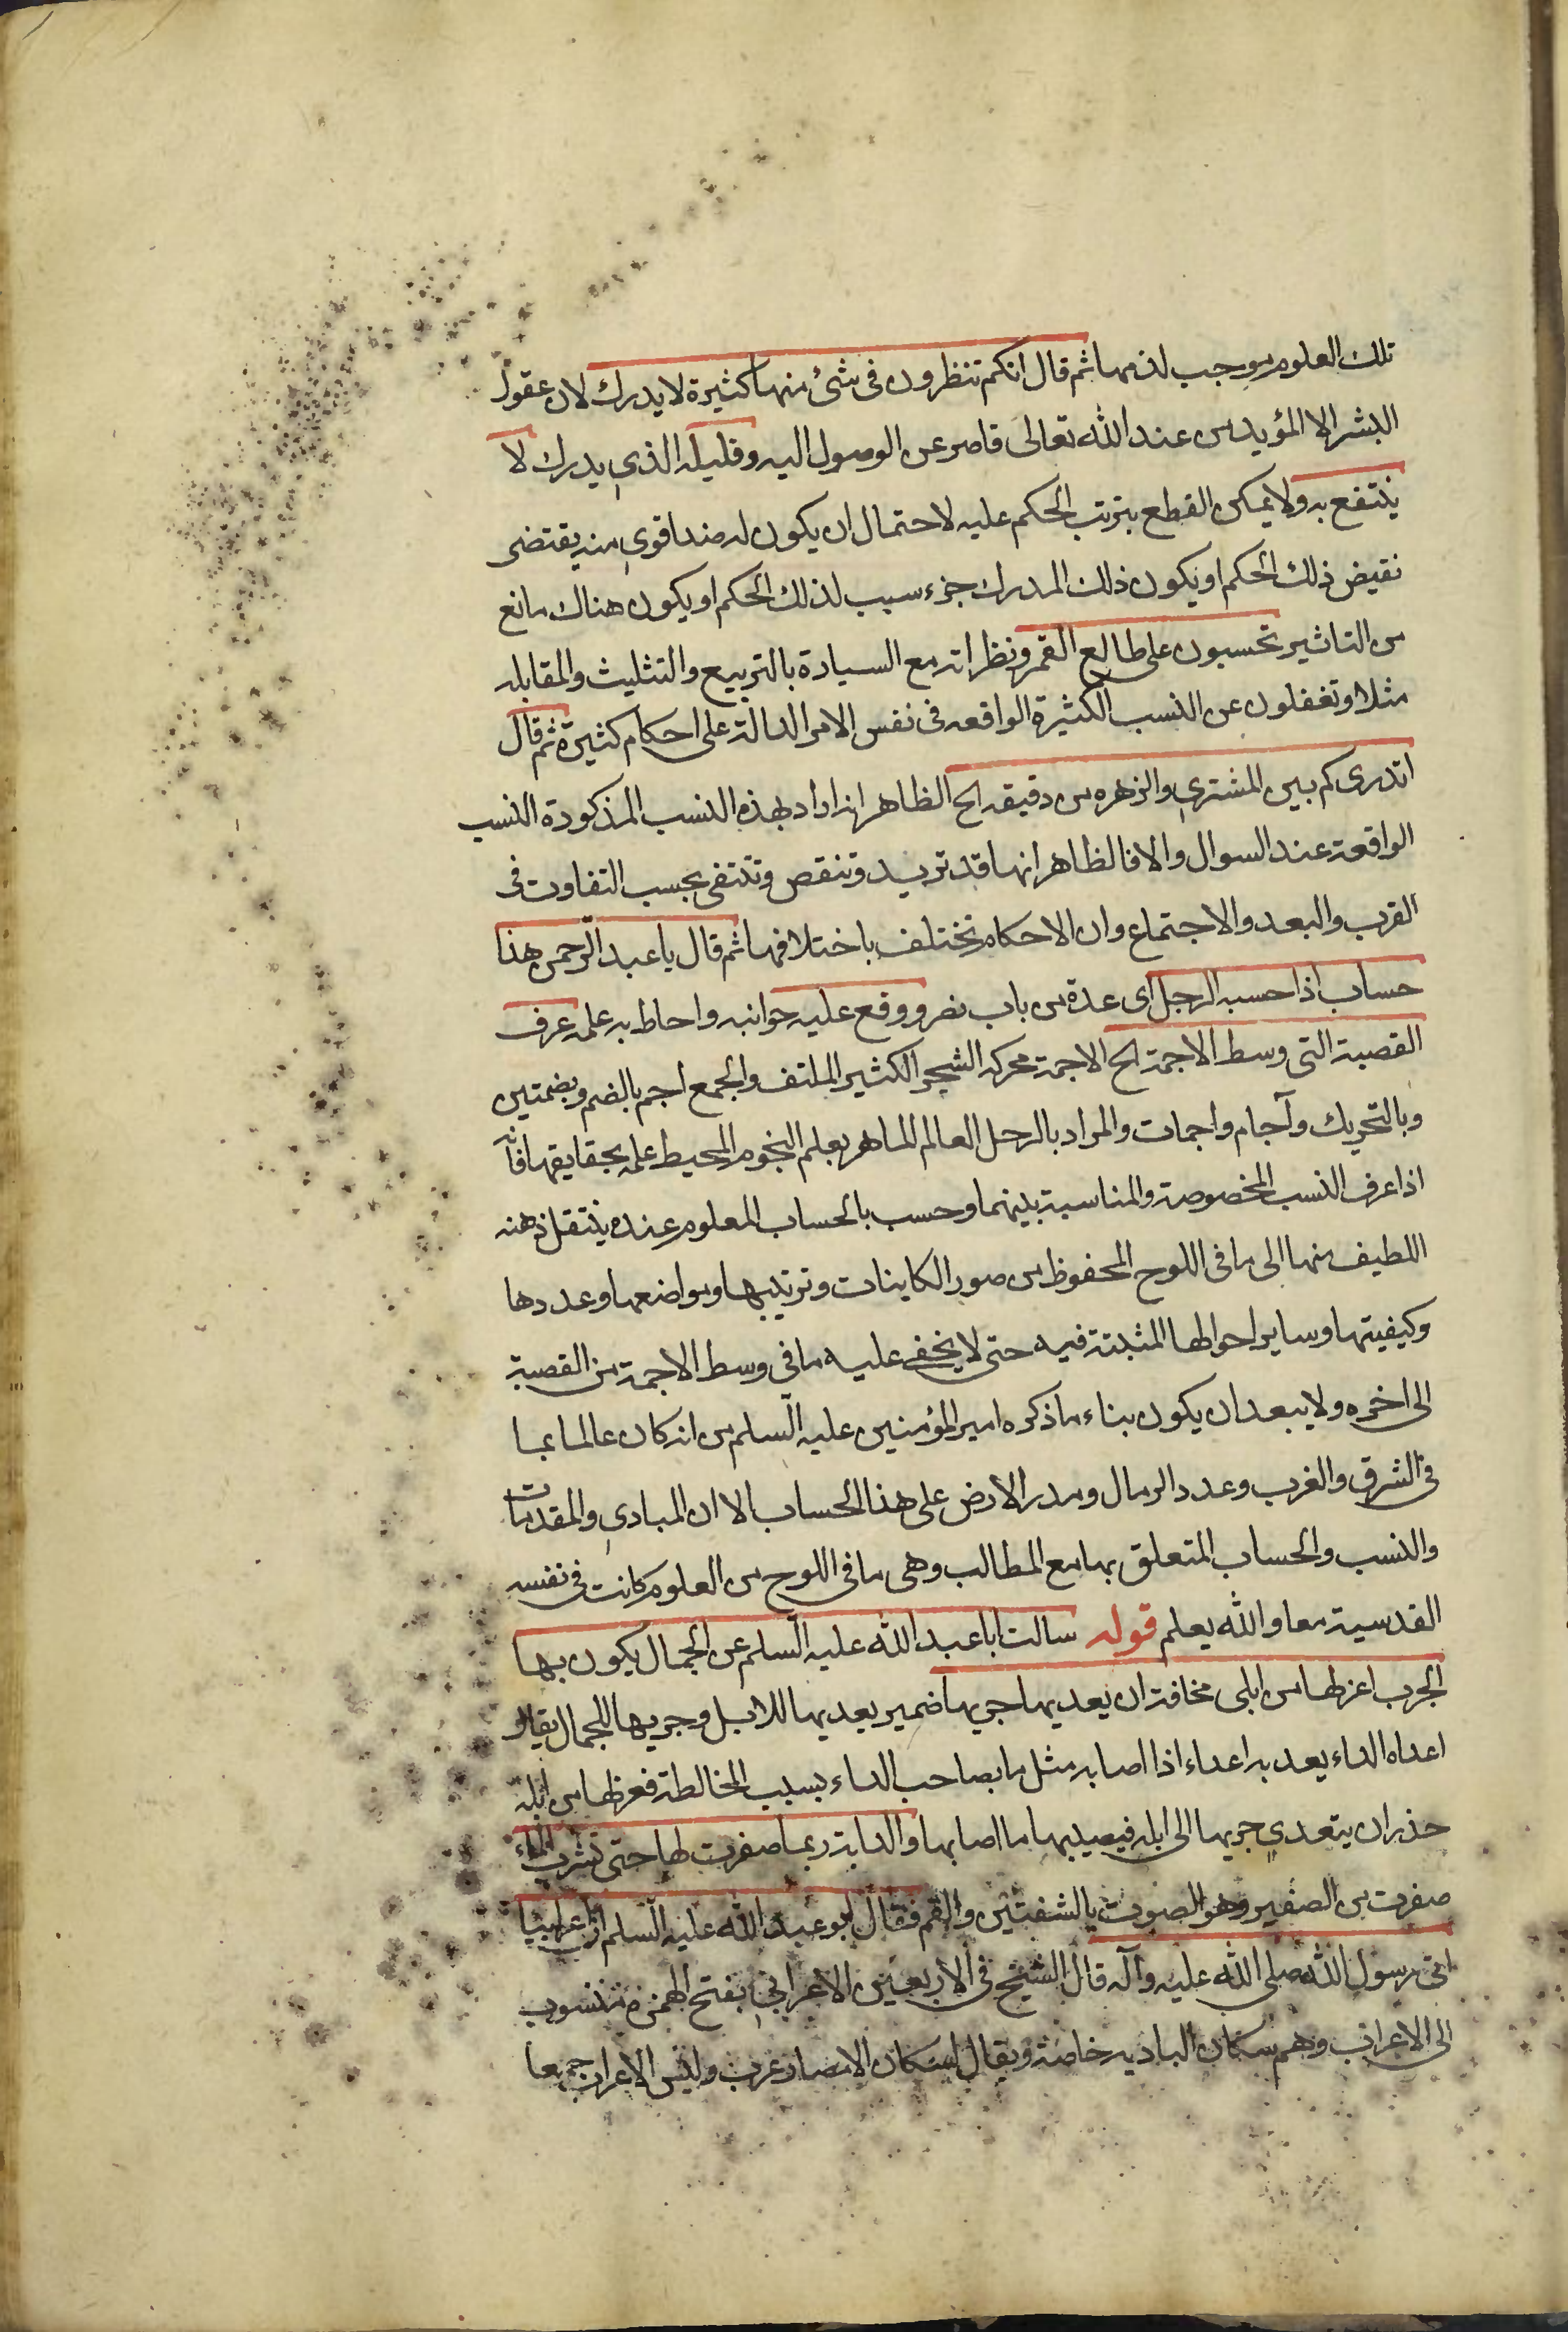 تلك العلوم موجب لذمها ثم قال انكم تنظرون فى شئ منها كثيرة لا يدرك لان عقول
البشر الا المؤيدين عند الله تعالى قاصر عن الوصول اليه وقليله الذى يدرك لا
ينتفع به ولا يمكن القطع بترتب الحكم عليه لاحتمال ان يكون له ضد اقوى منه يقتضى
نقيض ذلك الحكم او يكون ذلك المدرك جزء سبب لذلك الحكم او يكون هناك مانع
من التاثير تحسبون على طالع القمر ونظراته مع السيارة بالتربيع والتثليث والمقابله
مثلا وتغفلون عن النسب الكثيرة الواقعه فى نفس الامر الدالة على احكام كثيرة ثم قال
اتدرى كم بين المشترى والزهره من دقيقه الح الظاهر انه اراد بهذه النسب المذكورة النسب
الواقعة عند السوال والا فالظاهر انها قد تزيد وتنقص وتنتفى بحسب التفاوت فى
القرب والبعد والاجتماع وان الاحكام تختلف باختلافها ثم قال يا عبد الرحمن هذا
حساب اذا حسبه الرجل اى عدة من باب نصر ووقع عليه جوانبه واحاط به علمه عرف
القصبة التى وسط الاجمة الح الاجمة محركه الشجر الكثير الملتف والجمع اجم بالضم وبضمتين
وبالتحريك وآجام واجمات والمراد بالرجل العالم الماهر بعلم النجوم المحيط علمه بحقايقها فانه
اذا عرف النسب المخصوصة والمناسبة بينهما وحسب بالحساب المعلوم عنده ينتقل ذهنه
اللطيف منها الى ما فى اللوح المحفوظ من صور الكاينات وترتيبها ومواضعها وعددها
وكيفيتها وساير احوالها المثبتة فيه حتى لا يخفى عليه ما فى وسط الاجمة من القصبة
الى اخره ولا يبعد ان يكون بناء ما ذكره امير المؤمنين عليه السلم من انه كان عالما بما
فى الشرق والغرب وعدد الرمال ومدر الارض على هذا الحساب الا ان المبادى والمقدمات
والنسب والحساب المتعلق بها مع المطالب وهى ما فى اللوح من العلوم كانت فى نفسه
القدسية معا والله يعلم قوله سالت ابا عبد الله عليه السلم عن الجمال يكون بها
الجرب اعزلها من ابلى مخافة ان يعديها جربها ضمير يعديها للابل وجربها للجمال يقال
اعداه الداء يعد به اعداء اذا اصابه مثل ما بصاحب الداء بسبب المخالطة فعزلها من ابله
حذر ان يتعدى جربها الى ابله فيصيبها ما اصابها والدابة ربما صفرت لها حتى تشرب الماء
صفرت من الصفير وهو الصوت بالشفتين والفم فقال ابو عبد الله عليه السلم ان اعرابيا
اتى رسول الله صلى الله عليه وآله قال الشيخ فى الاربعين الاعرابى بفتح الهمزة منسوب
الى الاعراب وهم سكان الباديه خاصة ويقال لسكان الامصار عرب وليس الاعراب جمعا